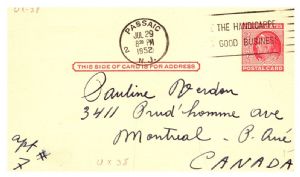 UX-38
PASSAIC
JUL 29
8:30 PM
1952
N.J.
2
THE HANDICAPPED
GOOD BUSINESS
THIS SIDE OF CARD IS FOR ADDRESS
POSTAL CARD
Pauline Verdon
3411 Prud'homme ave
Montreal - P. Qué
CANADA
apt
7 #
UX38